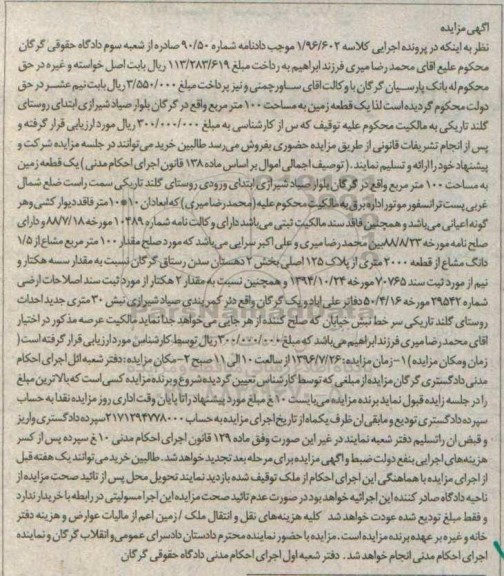 آگهی مزایده
نظر به اینکه در پرونده اجرایی کلاسه ۱/۹۶/۶۰۲ موجب دادنامه شماره ۹۰/۵۰ صادره از شعبه سوم دادگاه حقوقی گرگان
محکوم علیع اقای محمد رضا میری فرزند ابراهیم به رداخت مبلغ ۱۱۳/۲۸۳/۶۱۹ ریال بابت اصل خواسته و غیره در حق
محکوم له بانک پارسیان گرگان با وکالت اقای ساورچمنی و نیز پرداخت مبلغ ۳/۵۵۰/۰۰۰ ریال بابت نیم عشر در حق
دولت محکوم گردیده است لذا یک قطعه زمین به مساحت ۱۰۰ متر مربع واقع در گرگان بلوار صیاد شیرازی ابتدای روستای
گلند تاریکی به مالکیت محکوم علیه توقیف که س از کارشناسی به مبلغ ۳۰۰/۰۰۰/۰۰۰ ریال مورد ارزیابی قرار گرفته و
پس از انجام تشریفات قانونی از طریق مزایده حضوری بفروش می رسد طالبین خرید می توانند در جلسه مزایده شرکت و
پیشنهاد خود را ارائه و تسلیم نمایند. (توصیف اجمالی اموال بر اساس ماده ۱۳۸ قانون اجرای احکام مدنی) یک قطعه زمین
به مساحت ۱۰۰ متر مربع واقع در گرگان بلوار صیاد شیرازی ابتدای ورودی روستای گلند تاریکی سمت راست ضلع شمال
غربی پست ترانسفور موتور اداره برق به مالکیت محکوم علیه (محمد رضا میری) که ابعاد ان ۱۰*۱۰ متر فاقد دیوار کشی و هر
گونه اعیانی می باشد و همچنین فاقد سند مالکیت ثبتی می باشد دارای وکالت نامه شماره ۱۰۴۸۹ مورخه ۸۸/۷/۱۸ و دارای
صلح نامه مورخه ۸۸/۸/۲۳ بین محمد رضا میری و علی اکبر سرایی می باشد که مورد صلح مقدار ۱۰۰ متر مربع مشاع از ۱/۵
دانگ مشاع از قطعه ۲۰۰۰ متری از پلاک ۱۲۵ اصلی بخش ۲ دهستان سدن رستاق گرگان نسبت به مقدار سسه هکتار و
نیم از مورد ثبت سند ۷۰۷۶۵ مورخه ۱۳۹۴/۱۰/۲۴ و همچنین نسبت به مقدار ۲ هکتار از مورد ثبت سند اصلاحات ارضی
شماره ۲۹۵۴۲ مورخه ۵۰/۴/۱۶ دفاتر علی اباد و یک گرگان واقع در کمربندی صیاد شیرازی نبش ۳۰ متری جدید احداث
روستای گلند تاریکی سر خط نبش خیابان که صلح کننده از هر جایی می خواهد جدا نماید مالکیت عرصه مذکور در اختیار
اقای محمد رضا میری فرزند ابراهیم می باشد که مبلغ ۳۰۰/۰۰۰/۰۰۰ ریال توسط کارشناس مورد ارزیابی قرار گرفته است (
زمان و مکان مزایده) ۱-زمان مزایده: ۱۳۹۶/۷/۲۶ از ساعت ۱۰ الی ۱۱ صبح ۲-مکان مزایده: دفتر شعبه ائل اجرای احکام
مدنی دادگستری گرگان مزایده از مبلغی که توسط کارشناس تعیین گردیده شروع و برنده مزایده کسی است که بالاترین مبلغ
را در جلسه زایده قبول نماید برنده مزایده می بایست ۱۰ غ مبلغ مورد پیشنهاد را تا پایان وقت اداری روز مزایده نقدا به حساب
سپرده دادگستری تودیع و مابقی ان ظرف یکماه از تاریخ اجرای مزایده به حساب ۲۱۷۱۲۹۴۷۷۸۰۰۰ سپرده دادگستری واریز
و قبض ان راتسلیم دفتر شعبه نمایند در غیر این صورت وفق ماده ۱۲۹ قانون اجرای احکام مدنی ۱۰ غ سپرده پس از کسر
هزینه های اجرایی بنفع دولت ضبط و آگهی مزایده برای مرحله بعد تجدید خواهد شد. طالبین خرید می توانند یک هفته قبل
از اجرای مزایده با هماهنگی این اجرای احکام از ملک توقیف شده بازدید نمایند تحویل محل پس از تائید صحت مزایده از
ناحیه دادگاه صادر کننده این اجرائیه خواهد بود در صورت عدم تائید صحت مزایده این اجرا مسولیتی در رابطه با خریدار ندارد
و فقط مبلغ تودیع شده عودت خواهد شد کلیه هزینه های نقل و انتقال ملک / زمین اعم از مالیات عوارض و هزینه دفتر
خانه و غیره بر عهده برنده مزایده است. مزایده با حضور نماینده محترم دادستان دادسرای عمومی و انقلاب گرگان و نماینده
اجرای احکام مدنی انجام خواهد شد. دفتر شعبه اول اجرای احکام مدنی دادگاه حقوقی گرگان